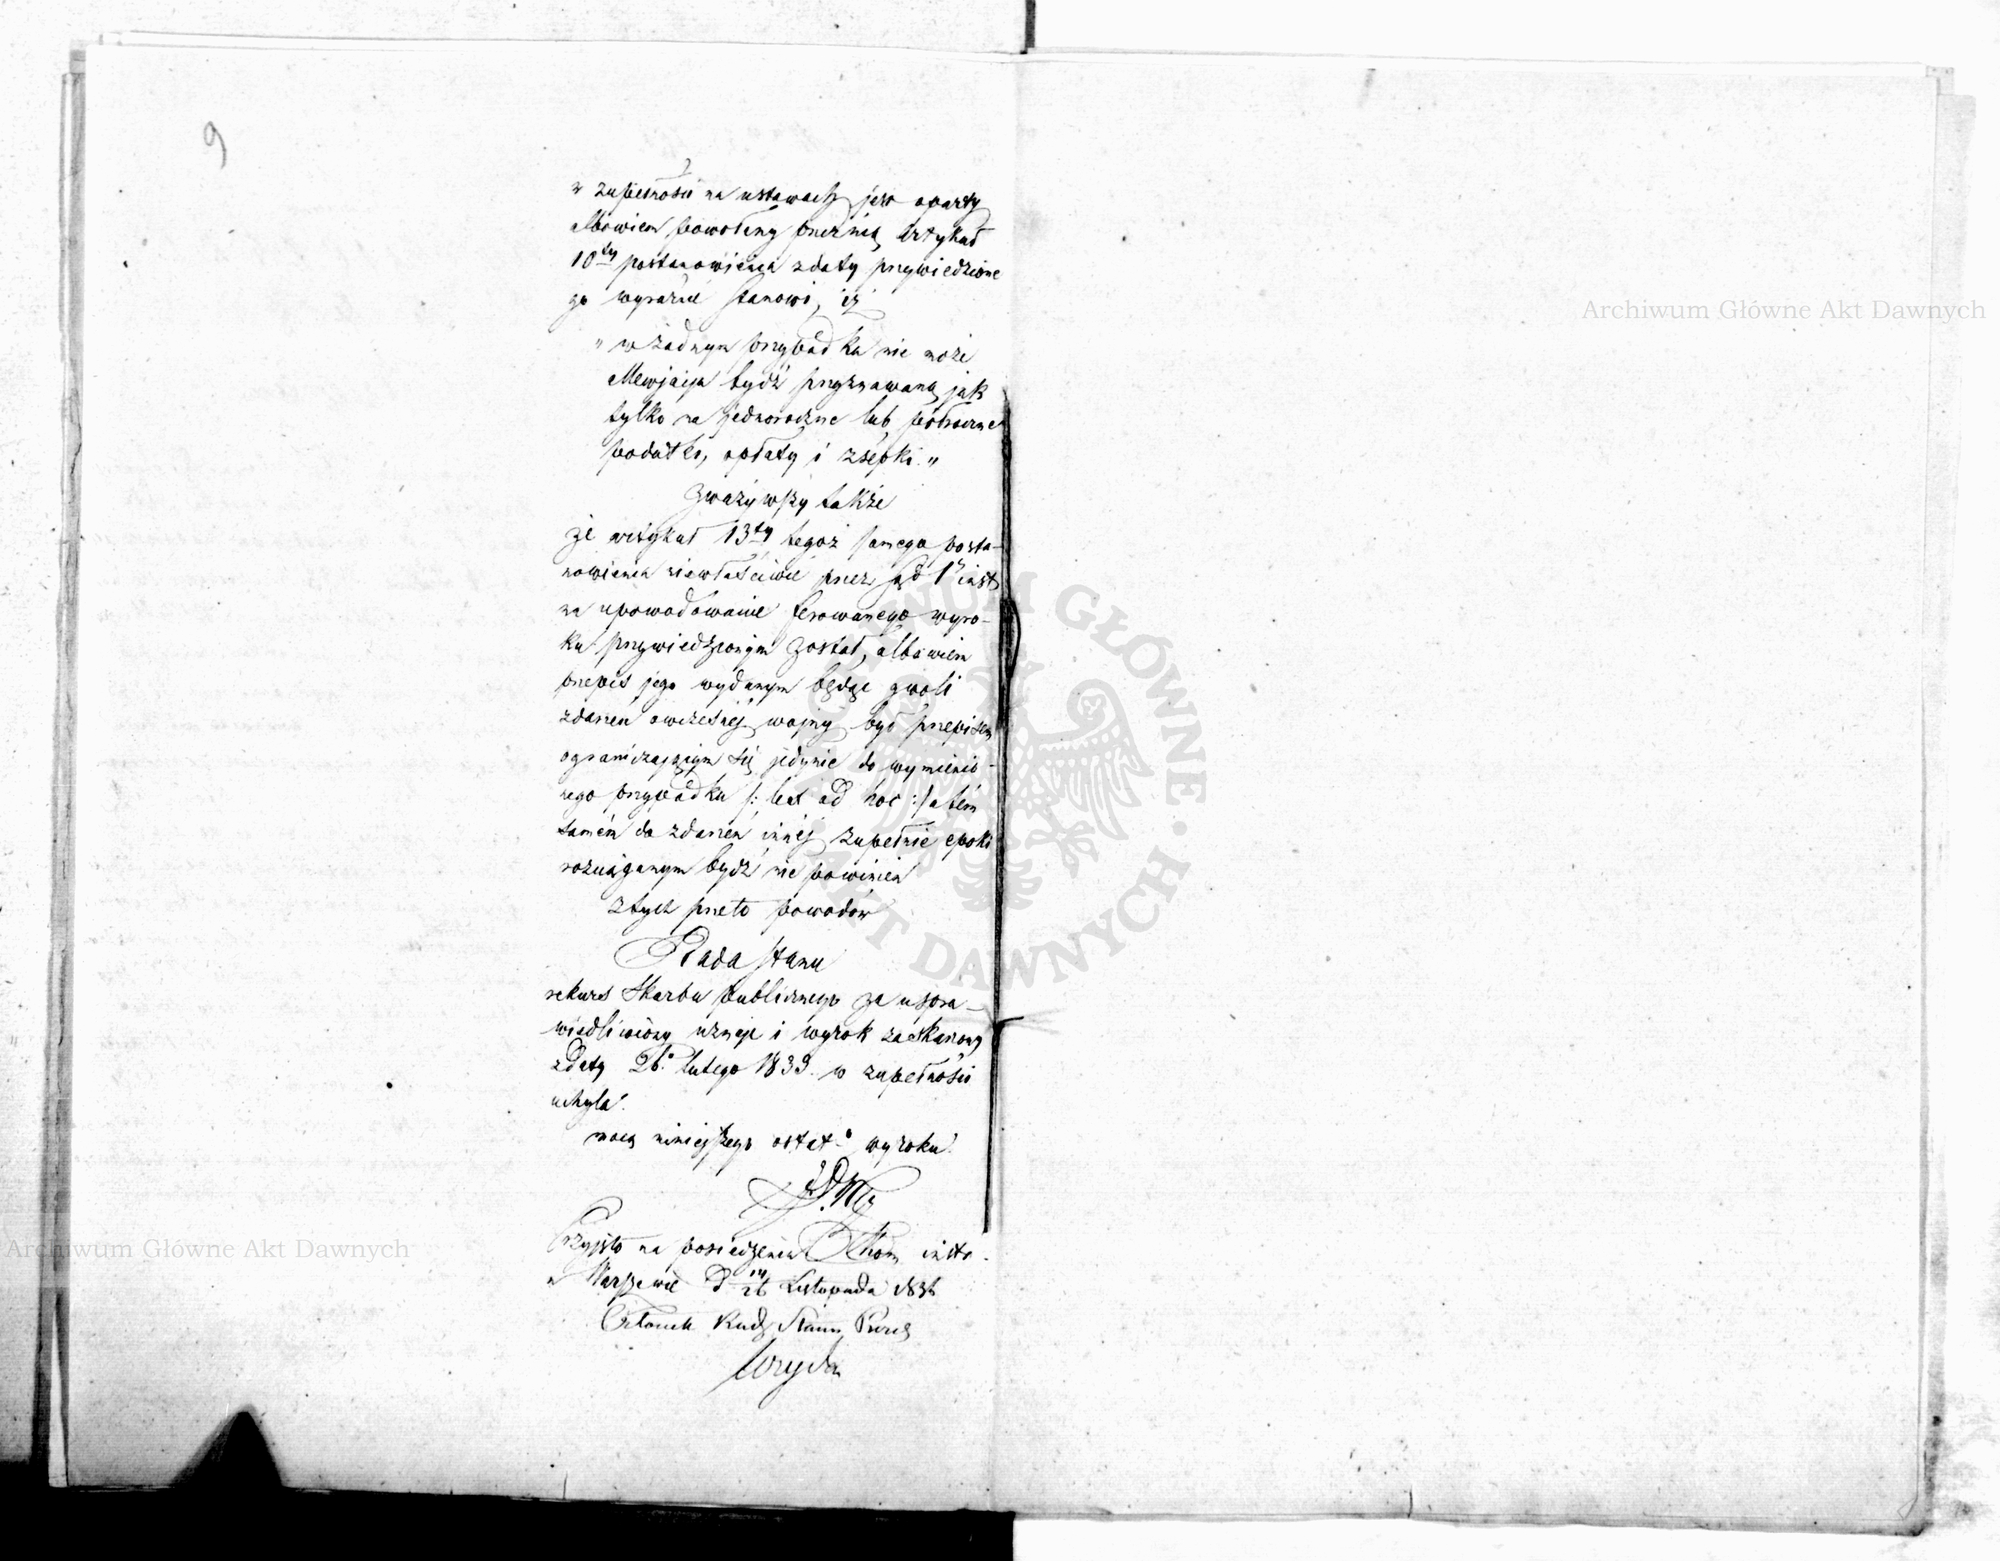 9
w zupełności na ustawach jest oparty
albowiem powołany przez nią Artykuł
10ty postanowienia z daty przywiedzione
go wyraźnie stanowi, iż
„w żadnym przypadku nie może
Alewjacja bydź przyznawaną jak
tylko na jednoroczne lub półroczne
podatki, opłaty i zsepki."
Zważywszy także
że artykuł 13ty tegoż samego posta-
nowienia niewłaściwie przez sąd 1 inst
na upowodowanie ferowanego wyro-
ku przywiedzionym został, albowiem
przepis jego wydanym będąc gwoli
zdarzeń owczesnej wojny był przepisem
ograniczającym się jedynie do wymienio-
nego przypadku /: lex ad hoc :/ a tem
samem do zdarzeń innej zupełnie epoki
rozciąganym bydź nie powinien
Z tych przeto powodów
Rada Stanu
rekurs Skarbu publicznego za uspra-
wiedliwiony uznaje i wyrok zaskarżony
z daty 26 lutego 1833 w zupełności
uchyla
mocą niniejszego ostat wyroku
Przyjęto na posiedzeniu
w Warszawie d 14/26 Listopada 1836
Członek Rady Stanu Prezes
Archiwum Główne Akt Dawnych
Archiwum Główne Akt Dawnych
ARCHIWUM GŁÓWNE · AKT DAWNYCH ·